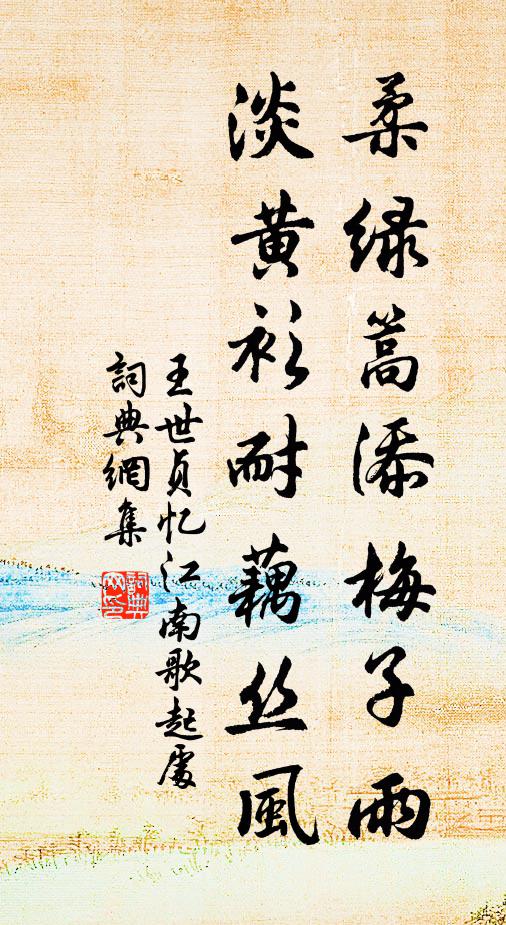 柔绿蒿添梅子雨
淡黄衫耐藕丝風
王世贞忆江南歌起處
詞典網集